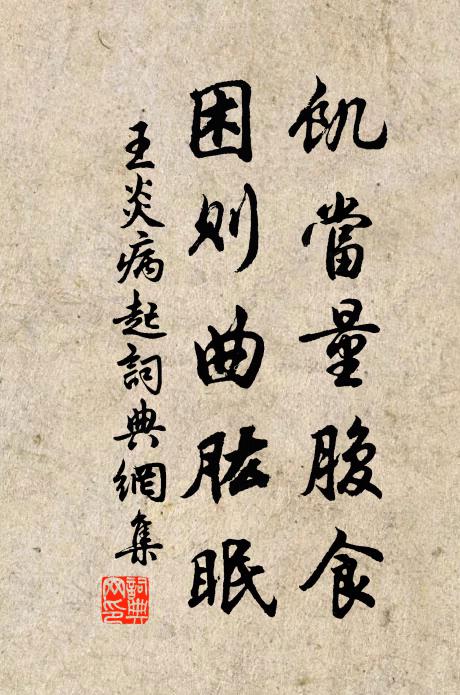 飢當量腹食
困则曲肱眠
王炎病起詞典網集
詞典网印